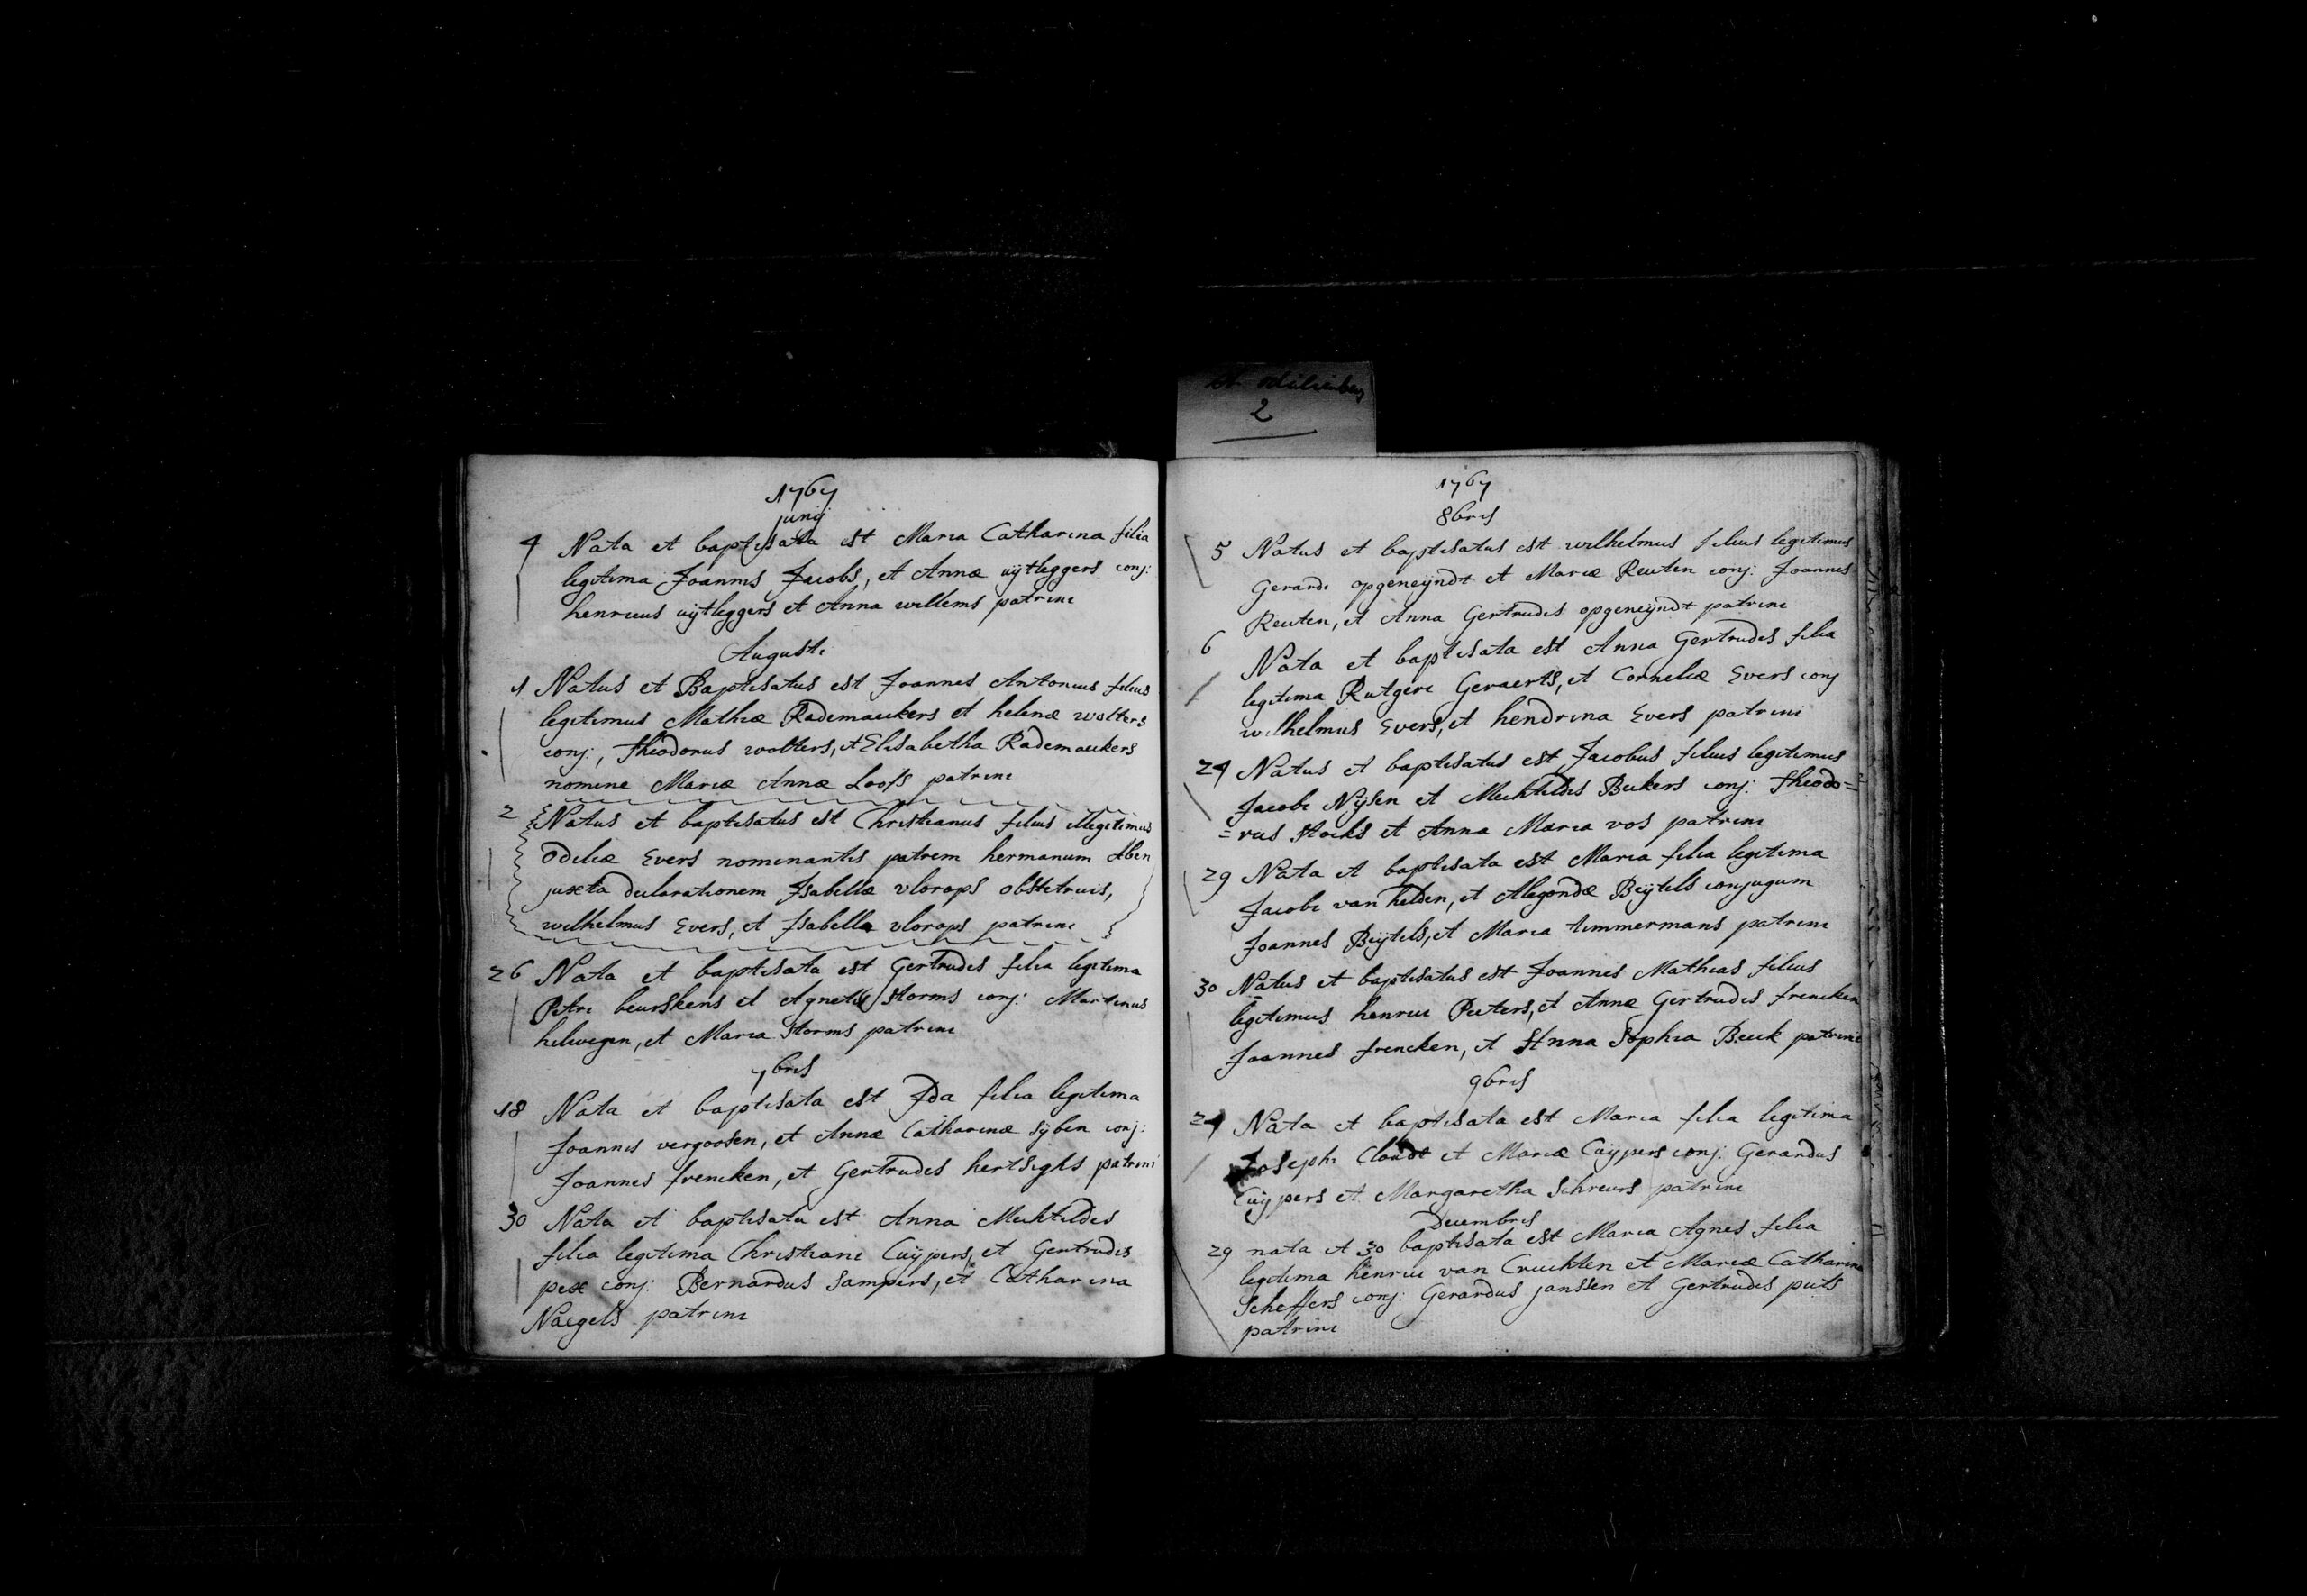 St odilienberg
2
1767
junij
4 Nata et baptisata est Maria Catharina filia
legitima Joannis Jacobs, et Annæ uijtleggers conj:
henricus uijtleggers et Anna willems patrini
Augusti
1 Natus et Baptisatus est Joannes Antonius filius
legitimus Mathiæ Rademaeckers et helenæ wolters
conj:, theodorus wolters, et Elisabetha Rademaeckers
nomine Mariæ Annæ Loofs patrini
2 Natus et baptisatus est Christianus filius illegitimus
Odiliæ Evers nominantis patrem hermanum Aben
juxta declarationem Isabellæ vlorops obstetricis,
wilhelmus Evers, et Isabella vlorops patrini
26 Nata et baptisata est Gertrudis filia legitima
Petri beurskens et Agnetis storms conj: Martinus
helwegen, et Maria storms patrini
7bris
18 Nata et baptisata est Ida filia legitima
Joannis vergoosen, et Annæ Catharinæ sijben conj:
Joannes frencken, et Gertrudis hertsighs patrini
30 Nata et baptisata est Anna Mechtildis
filia legitima Christiani Cuijpers, et Gertrudis
pex conj: Bernardus sampers, et Catharina
Naegels patrini
1767
8bris
5 Natus et baptisatus est wilhelmus filius legitimus
Gerardi opgeneijndt et Mariæ Reuten conj: Joannes
Reuten, et Anna Gertrudis opgeneijndt patrini
6 Nata et baptisata est Anna Gertrudis filia
legitima Rutgeri Geraerts, et Corneliæ Evers conj
wilhelmus Evers, et hendrina Evers patrini
24 Natus et baptisatus est Jacobus filius legitimus
Jacobi Nijsen et Mechtildis Beckers conj: theodo=
=rus stocks et Anna Maria vos patrini
29 Nata et baptisata est Maria filia legitima
Jacobi van helden, et Alegondæ Beijtels conjugum
Joannes Beijtels, et Maria timmermans patrini
30 Natus et baptisatus est Joannes Mathias filius
legitimus henrici Peeters, et Annæ Gertrudis frencken
Joannes frencken, et Anna Sophia Beeck patrini
9bris
24 Nata et baptisata est Maria filia legitima
Josephi Cloudt et Mariæ Cuijpers conj: Gerardus
Cuijpers et Margaretha schreurs patrini
Decembris
29 nata et 30 baptisata est Maria Agnes filia
legitima henrici van Cruchten et Mariæ Catharinæ
Scheffers conj: Gerardus janssen et Gertrudis puts
patrini